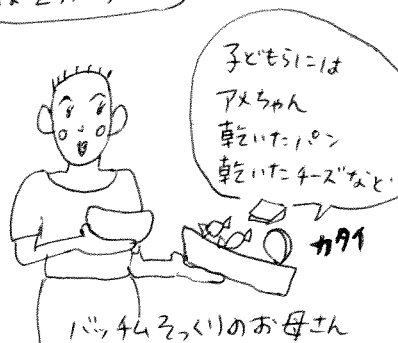 子どもらには
アメちゃん
乾いたパン
乾いたチーズなど
カタイ
バッチムそっくりのお母さん